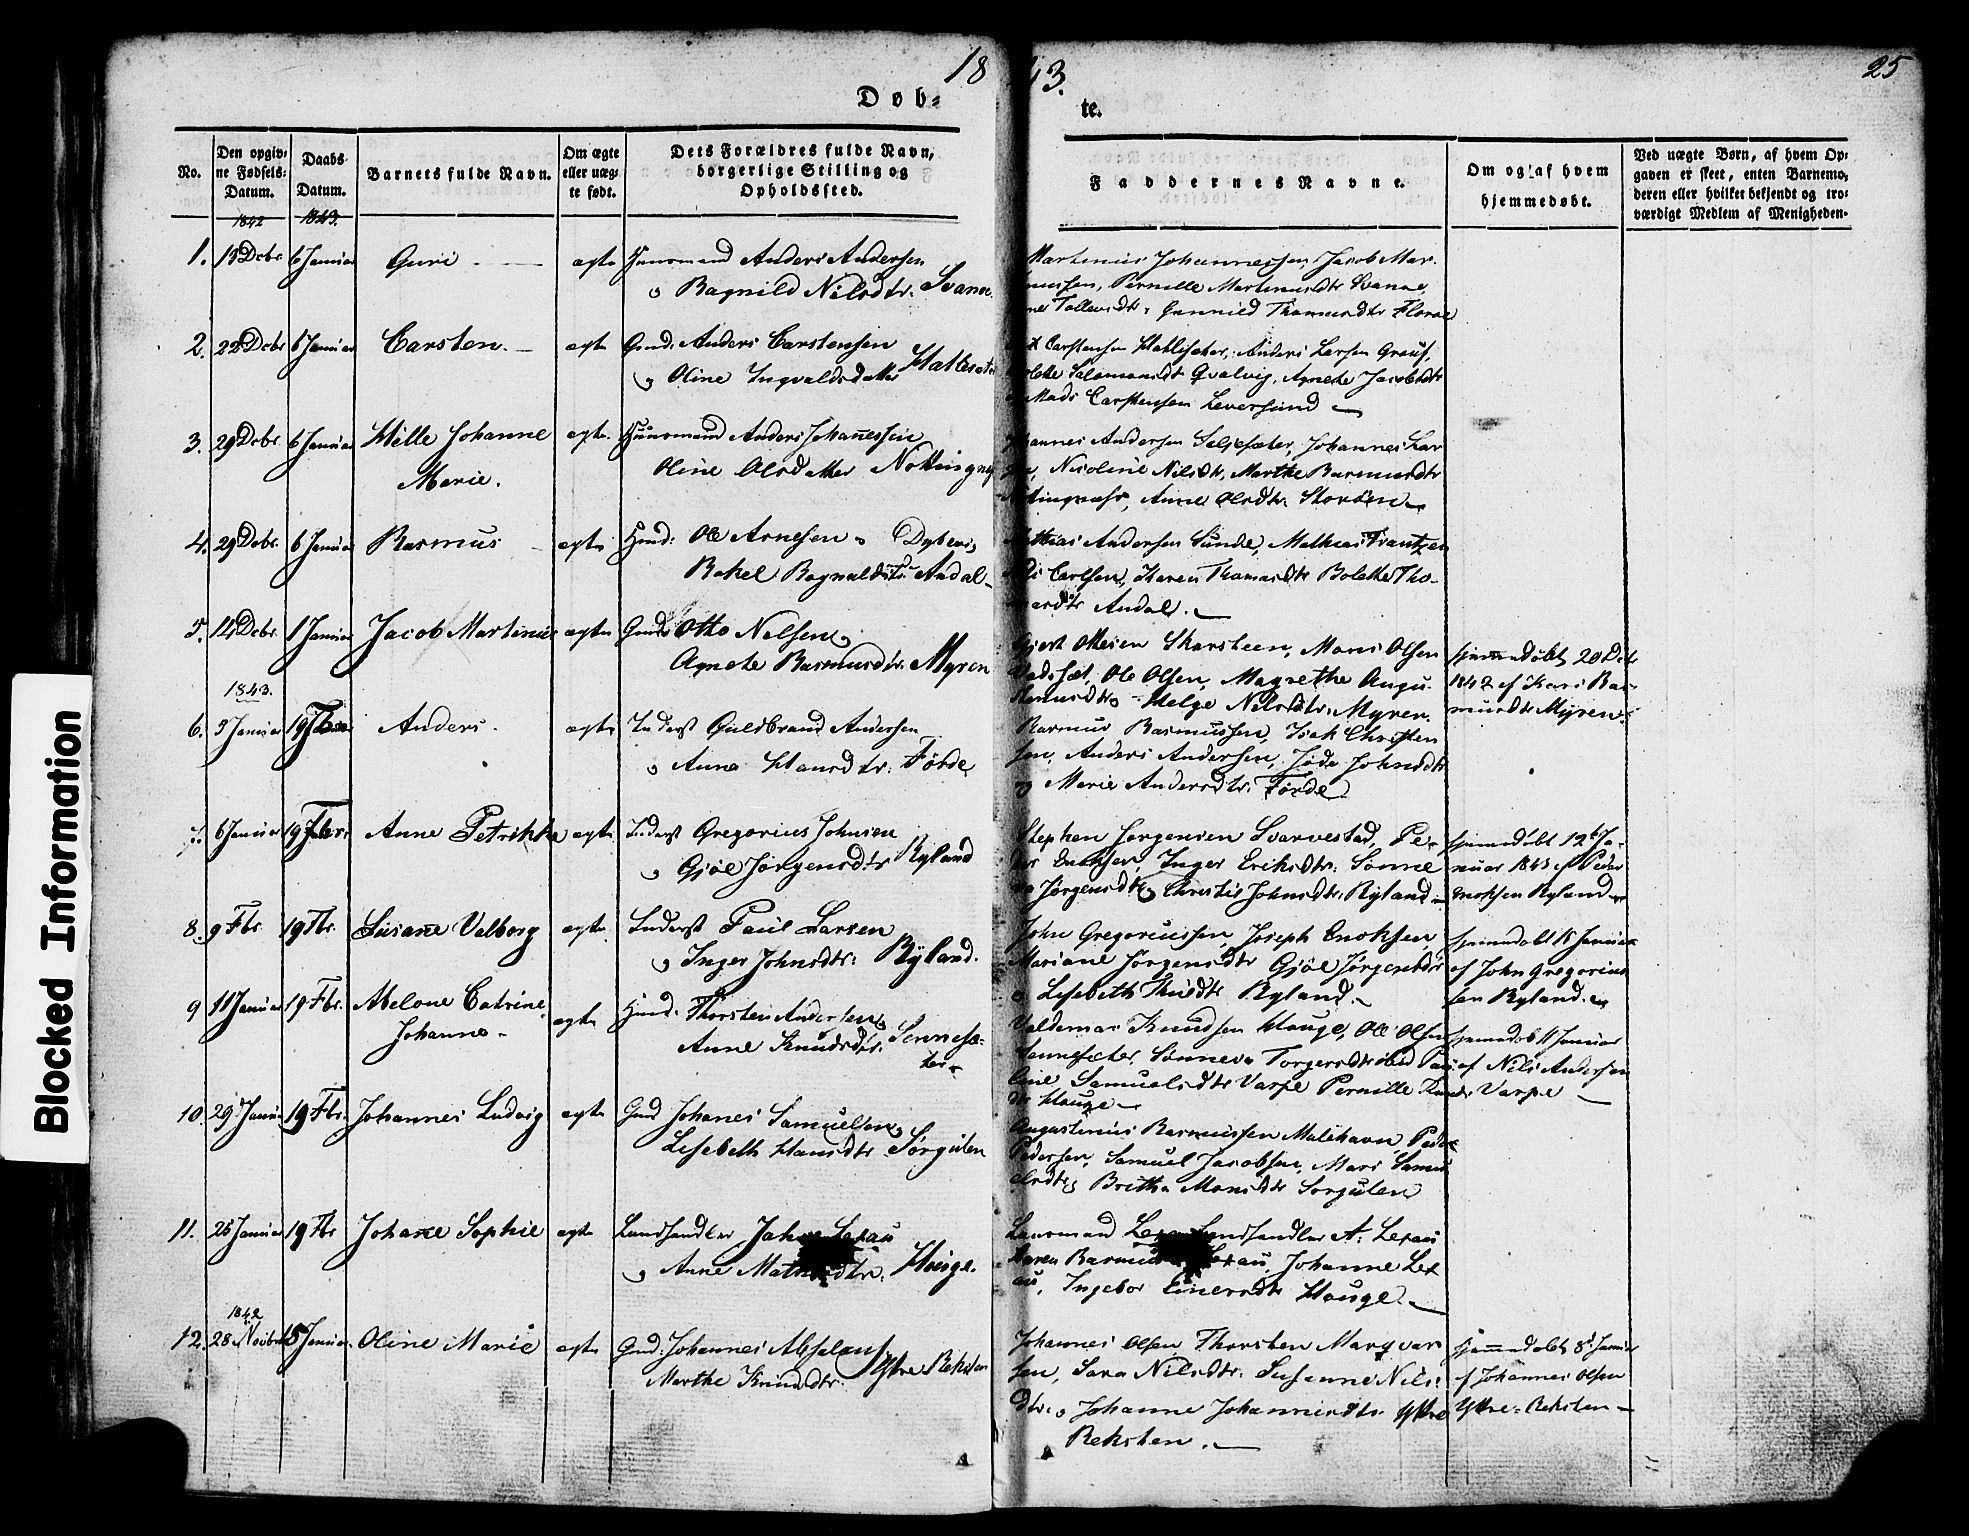 18
43.
25
Døb-
te.
No.
Den opgiv-
ne Fødsels-
Datum.
Daabs
Datum.
Barnets fulde Navn.
Om ægte
eller uæg-
te født.
Dets Forældres fulde Navn,
borgerlige Stilling og
Opholdssted.
Faddernes Navne.
Om og af hvem
hjemmedøbt.
Ved uægte Børn, af hvem Op-
gaven er skeet, enten Barnemo-
deren eller hvilket bekjendt og tro-
værdigt Medlem af Menigheden-
1842
1843.
1. 6 Januar Guri ægte Huusmand Anders Andersen
Ragnild Nilsdtr. Svanø
Martinus Johannessen, Jacob Mar-
Pernille Martinusdtr Svanø,
Gunnild Thomasdtr Florøe
2. 22 Decbr 6 Januar Carsten. ægte Gmd: Anders Carstensen
Oline Ingvaldsdatter
Carstensen Anders Larsen
Salamonsdtr Qvalvig, Agnete Jacobsdtr
Mads Carstensen Leversund
3. 29 Decbr 6 Januar Hille Johanne
Marie.
ægte Huusmand Anders Johannessen
Oline Olsdatter
Andersen Johannes Lar-
Nicoline Nilsdtr, Marthe Rasmusdtr
Anne Olsdtr. Storøen
4. 29 Decbr. 6 Januar Rasmus ægte Hmd: Ole Arnesen
Rakel Ragnaldsdtr Andal
Andersen Sunde, Mathias Frantzen
Carlsen, Karen Thomasdtr Bolethe Tho-
Andal.
5. 14 Decbr. 1 Januar Jacob Martinus ægte Gmd: Otto Nilsen
Agnete Rasmusdtr. Myren
Gjert Ottesen Skarsteen, Mons Olsen
Ole Olsen, Magrethe
Helge Nilsdtr: Myren.
hjemmedøbt 20 Dcbr
1842 af Kari Ras-
musdtr Myren.
1843.
6. 3 Januar 19 Fbr Anders. ægte Inderst Guldbrand Andersen
Anna Hansdtr: Førde
Rasmus Rasmussen, Isak Christen
sen, Anders Andersen, Johnsdtr
Marie Andersdtr. Førde
7. 6 Januar 19 Fbr. Anne Petrikke ægte Inderst Gregorius Johnsen
Gjøe Jørgensdtr Ryland
Stephen Jørgensen Svarvestad, Pe-
der Enoksen, Inger Eriksdtr: Sønne
va Jørgensdtr Christie Johnsdtr: Ryland
hjemmedøbt 12te Ja-
nuar 1843 af Peder
Enoksen Ryland
8. 9 Fbr. 19 Fbr. Susane Valborg ægte Inderst Paul Larsen
Inger Johnsdtr: Ryland.
John Gregoriussen, Joseph Enoksen,
Mariane Jørgensdtr Gjøe Jørgensdtr
Lisebeth Ryland.
hjemmedøbt Januar
af John Gregorius-
sen Ryland.
9 11 Januar 19 Fbr. Abelone Catrine
Johanne
ægte Hmd: Thorsten Andersen
Anne Knudsdtr. Sennesæ-
ter
Valdemar Knudsen Hauge, Ole Olsen
Sennesæter, Sønneva Torgersdtr
Samuelsdtr Varpe Pernille Knuds
dtr Hauge
hjemmedøbt 11 Januar
af Nils Andersen
Varpe
10. 29 Januar 19 Fbr. Johannes Ludvig ægte Gmd Johanes Samuelsen
Lisebeth Hansdtr Sørgulen
Augustinius Rasmussen Peder
Pedersen, Samuel Jacobsen, Mari Samu
elsdtr, Britha Monsdtr Sørgulen
11. 26 Januar 19 Fbr Johane Sophie ægte Landhandler Lexau
Anne Hauge.
Lensmand Landhandler A: Lexau
Maren Lexau, Johanne Lex
au, Ingebor Einersdtr Hauge.
1842
12. 28 Novbr 5 Januar. Oline Marie ægte Gmd: Johannes Absalons
Marthe Knudsdtr. Yttre Reksten
Johannes Olsen, Thorsten Marqvar
sen, Sara Nilsdtr: Susanne Nils-
dtr. Johanne Johannesdtr Yttre
Reksten.
Hjemmedøbt 8d Januar
af Johannes Olsen
Yttre-Reksten
Blocked Information